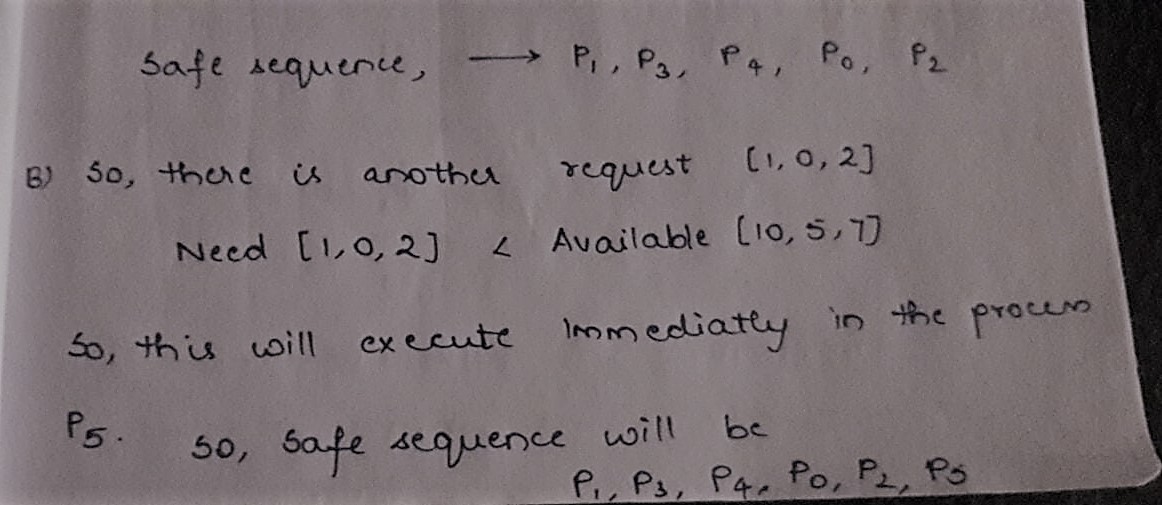 Safe sequence, → P1, P3, P4, P0, P2
B) So, there is another request [1, 0, 2]
Need [1, 0, 2] < Available [10, 5, 7]
So, this will execute immediatly in the process
P5. So, Safe sequence will be
P1, P3, P4, P0, P2, P5